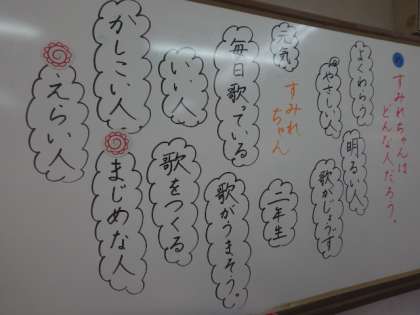 め
すみれちゃんは
どんな人だろう。
よくわらう
やさしい人
明るい人
歌がじょうず
元気
すみれ
ちゃん
二年生
毎日歌っている
歌がうまそう。
いい人
歌をつくる
かしこい人
まじめな人
えらい人